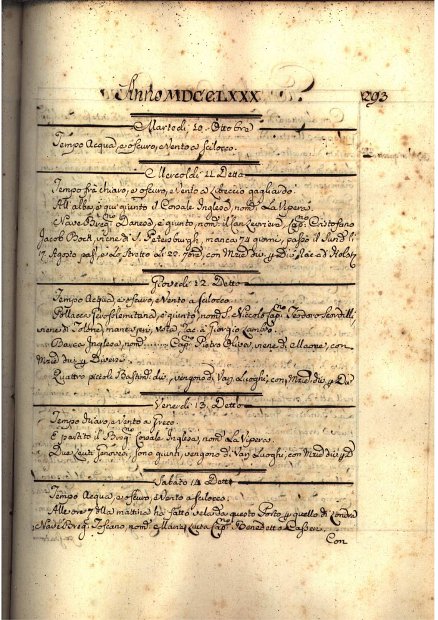 Anno MDCCLXXX. 293
Martedi 10. Ottobre
Tempo Acqua, e oscuro, e Vento a scilocco.
Mercoldi 11. Detto
Tempo frà chiaro, e oscuro, e Vento a Libeccio gagliardo
All'albe, è qui giunto il Corsale Inglese, nom. La Vipera.
Nave Danese, è giunto, nom. Cap. Cristofano
Jacob Bock, viene di S. Petersburgh, manca 74 giorni, passò il Sund li
7. Agosto pas, e lo Stretto li 22. con Mrzie div. p Div. Rac. ad
Giovedi 12. Detto
Tempo Acqua, e oscuro, Vento a scilocco
Pollacca Gerosolemitana, è giunto, nom. S. Niccolò Cap. Teodoro
viene di Tolone, manca giorni, Vota, Rac. a Giorgio
Barca Inglese, nom. Cap. Pietro Oliva, viene di Maone, con
Mrzie div. p Diversi.
Quattro piccoli Bastim. div. vengono di Varj Luoghi, con Mrzie div. p Di
Venerdi 13. Detto
Tempo chiaro, e Vento a Greco.
È partito il Brig. Corsale Inglese, nom. La Vipera.
Due Leuti Genovesi, sono giunti, vengono di Varj Luoghi, con Mrzie div. p D
Sabato 14 Detto
Tempo Acqua, e oscuro, e Vento a scilocco.
Alle ore 7 della mattina ha fatto vela da questo Porto p quello di Londra
Nave Toscano, nom. Maria Luisa Cap. Benedetto
Con